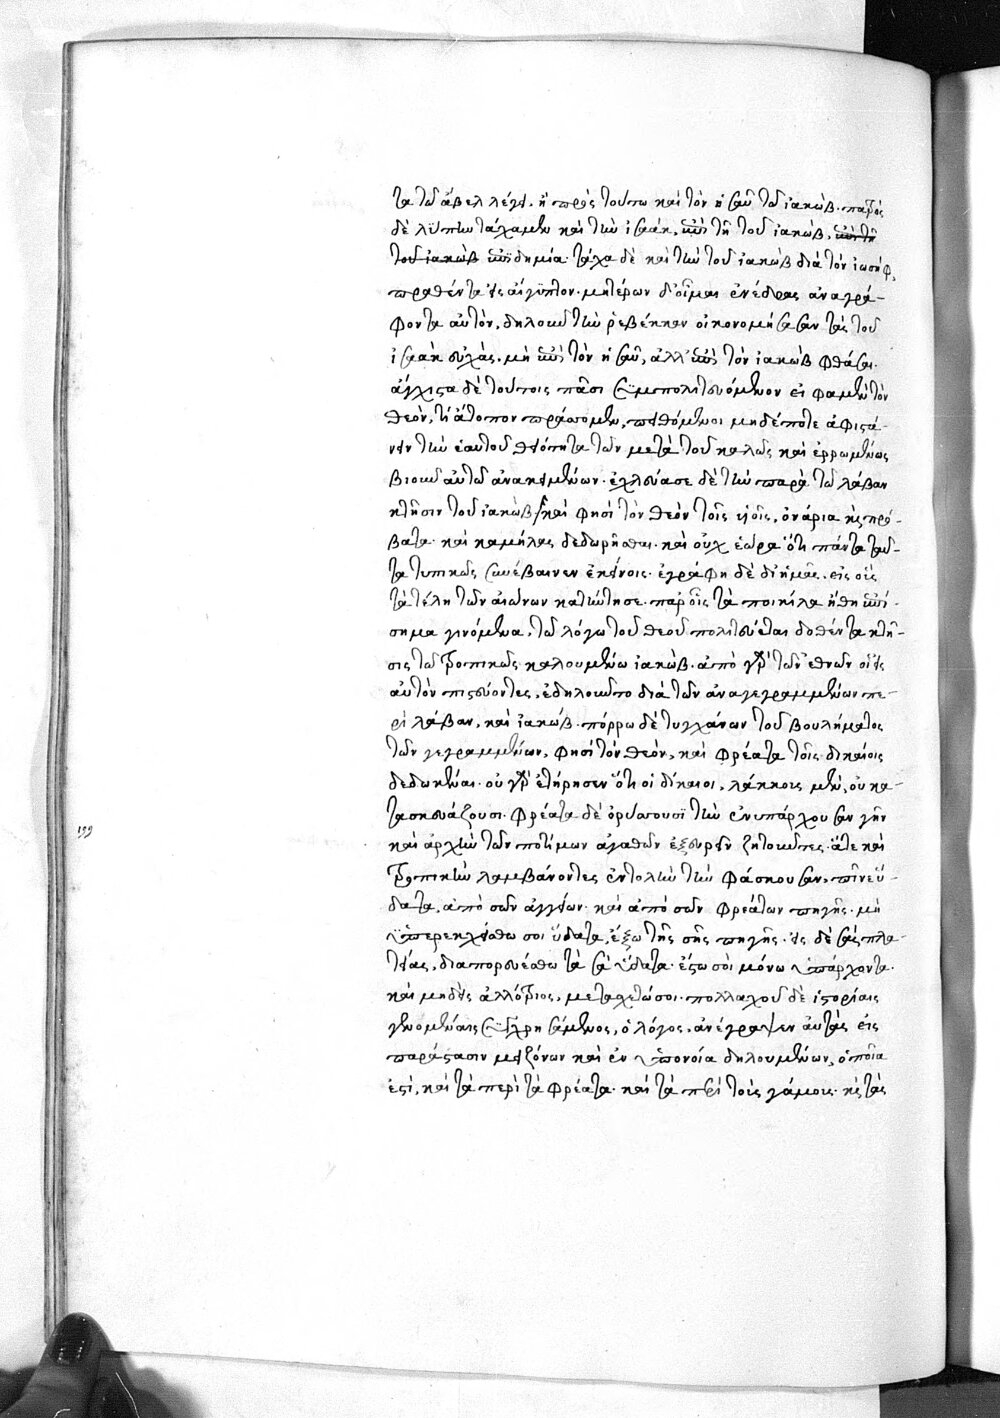 τα τῶ ἄβελ λέγει. ἢ πρὸς τούτω καὶ τὸν ἡσαῦ τῶ ἰακώβ. πατρὸς
δὲ λύπην τάχα μὲν καὶ τὴν ἰσαὰκ, ἐπὶ τῆ τοῦ ἰακὼβ, ἐπὶ τῆ
τοῦ ἰακὼβ ἀποδημία. τάχα δὲ καὶ τὴν τοῦ ἰακὼβ διὰ τὸν ἰωσὴφ,
πραθέντα εἰς αἴγυπτον. μητέρων δ' οἶμαι ἐνέδρας ἀναγρά-
φοντα αὐτὸν, δηλοῦν τὴν ῥεβέκκαν οἰκονομήσασαν τὰς τοῦ
ἰσαὰκ εὐχὰς. μὴ ἐπὶ τὸν ἡσαῦ, ἀλλ' ἐπὶ τὸν ἰακὼβ φθάσαι.
ἄγχιστα δὲ τούτοις πᾶσι συμπολιτευόμενον εἰ φαμὲν τὸν
θεὸν, τί ἄτοπον πράττομεν, πειθόμενοι μηδέποτε ἀφιστά-
νειν τὴν ἑαυτοῦ θειότητα τῶν μετὰ τοῦ καλῶς καὶ ἐρρωμένως
βιοῦν αὐτῶ ἀνακειμένων. ἐχλεύασε δὲ τὴν παρὰ τῶ λάβαν
κτῆσιν τοῦ ἰακὼβ καὶ φησὶ τὸν θεὸν τοῖς υἱοῖς, ὀνάρια κ(αὶ) πρό-
βατα. καὶ καμήλας δεδωρῆσθαι. καὶ οὐχ ἑώρα ὅτι πάντα ταῦ-
τα τυπικῶς συνέβαινεν ἐκείνοις. ἐγράφη δὲ δι' ἡμᾶς. εἰς οὓς
τὰ τέλη τῶν αἰώνων κατήντησε. παρ' οἷς τὰ ποικίλα ἤθη ἐπί-
σημα γινόμενα, τῶ λόγω τοῦ θεοῦ πολιτεύεται δοθέντα κτῆ-
σις τῶ τροπικῶς καλουμένω ἰακώβ. ἀπὸ γὰρ τῶν ἐθνῶν οἱ εἰς
αὐτὸν πιστεύοντες, ἐδηλοῦντο διὰ τῶν ἀναγεγραμμένων πε-
ρὶ λάβαν, καὶ ἰακώβ. πόρρω δὲ τυγχάνων τοῦ βουλήματος
τῶν γεγραμμένων, φησὶ τὸν θεὸν, καὶ φρέατα τοῖς δικαίοις
δεδωκέναι. οὐ γὰρ ἐτήρησεν ὅτι οἱ δίκαιοι, λάκκους μὲν, οὐ κα-
τασκευάζουσι. φρέατα δὲ ὀρύττουσι τὴν ἐνυπάρχουσαν γῆν
καὶ ἀρχὴν τῶν ποτίμων ἀγαθῶν ἐξευρεῖν ζητοῦντες. ἅτε καὶ
τροπικὴν λαμβάνοντες ἐντολὴν τὴν φάσκουσαν, πῖνε ὕ-
δατα, ἀπὸ σῶν ἀγγείων. καὶ ἀπὸ σῶν φρεάτων πηγῆς. μὴ
ὑπερεκχείσθω σοι ὕδατα, ἔξω τῆς σῆς πηγῆς. εἰς δὲ σὰς πλα-
τείας, διαπορευέσθω τὰ σὰ ὕδατα. ἔστω σοὶ μόνω ὑπάρχοντα.
καὶ μηδεὶς ἀλλότριος, μετασχέτω σοι. πολλαχοῦ δὲ ἱστορίαις
γενομέναις συγχρησάμενος, ὁ λόγος, ἀνέγραψεν αὐτὰς εἰς
παράστασιν μειζόνων καὶ ἐν ὑπονοία δηλουμένων, ὁποῖα
ἐστὶ, καὶ τὰ περὶ τὰ φρέατα. καὶ τὰ περὶ τοὺς γάμους. κ(αὶ) τὰς
199